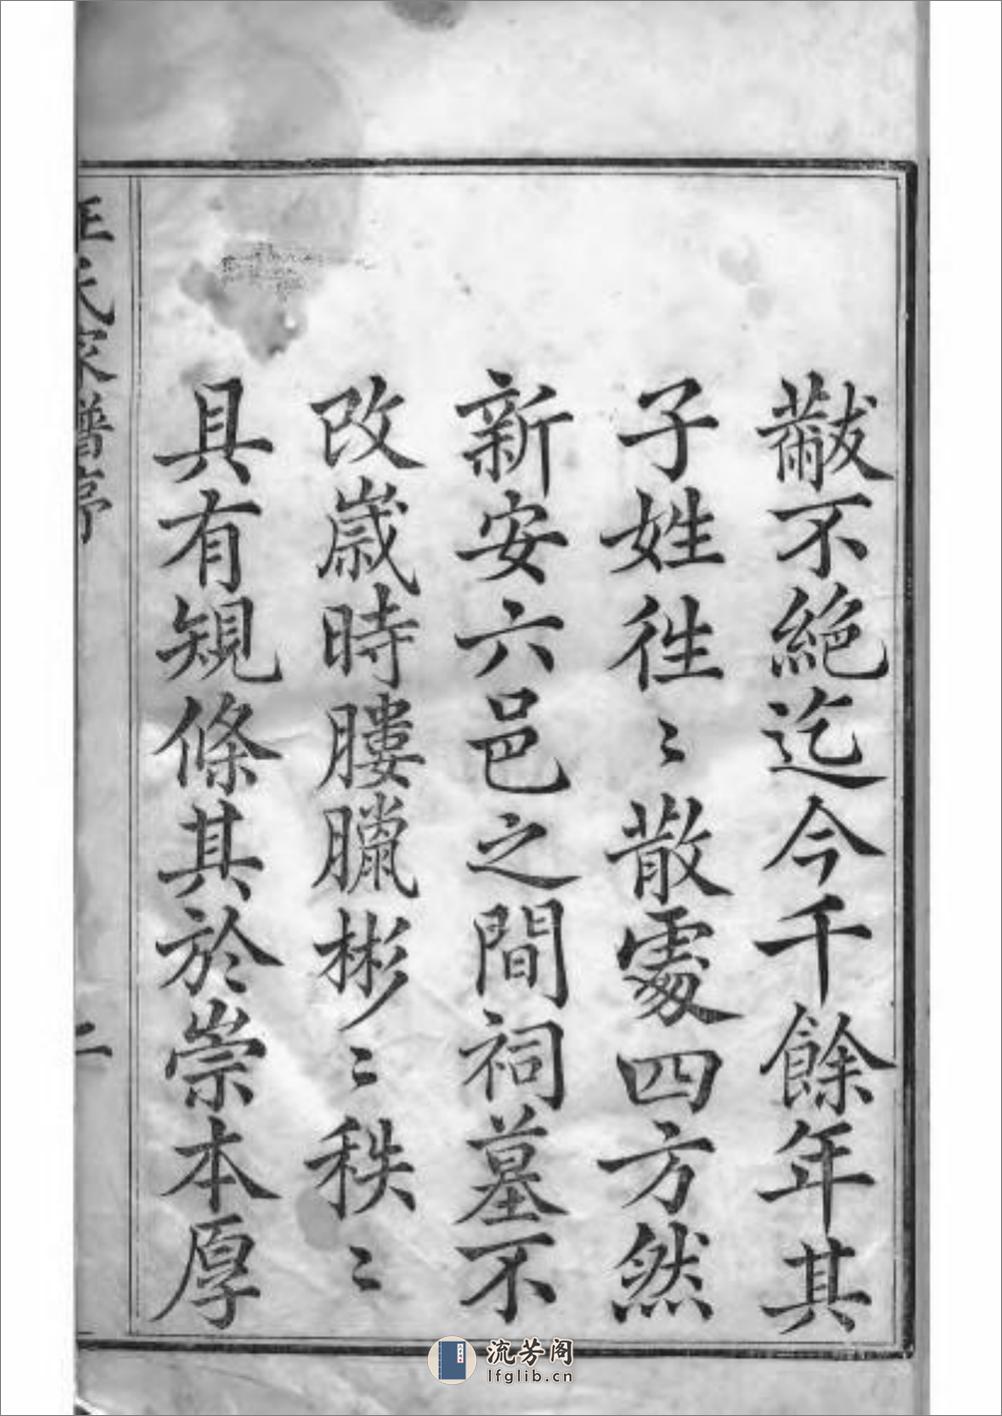 黻不絶迄今千餘年其
子姓徃〻散處四方然
新安六邑之間祠墓不
改嵗時膢臘彬〻秩〻
具有規條其於崇本厚
汪氏家譜序
二
流芳阁
lfglib.cn